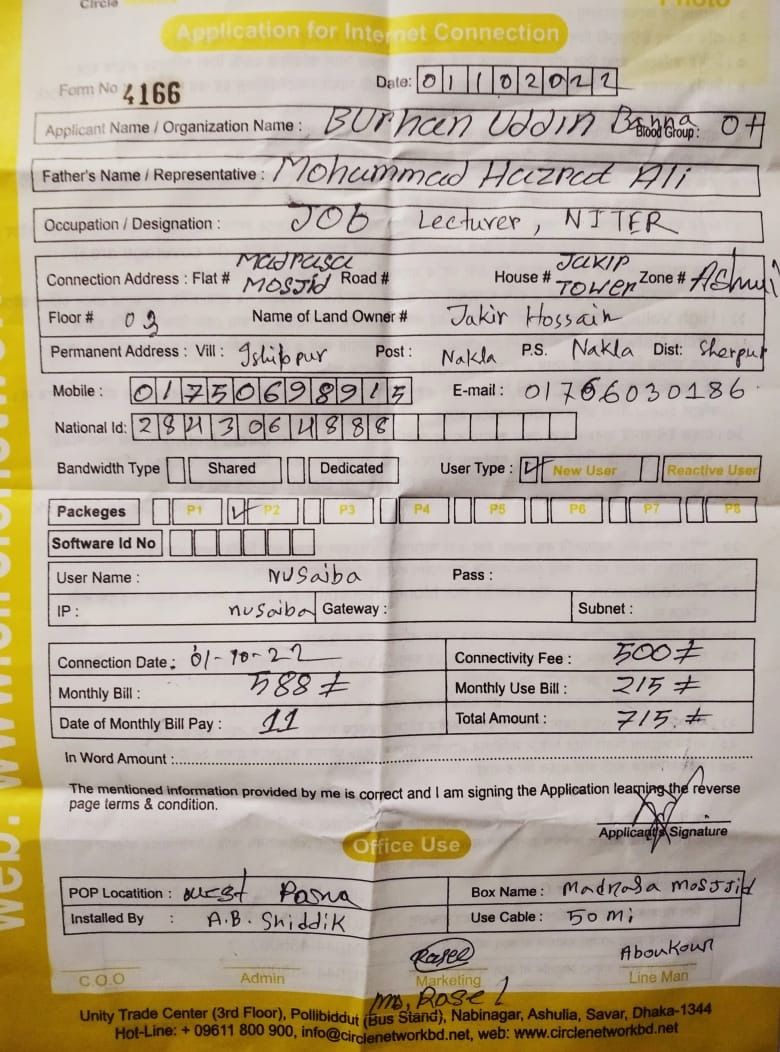 Circle
Photo
Application for Internet Connection
Form No 4166
Date: 01102022
Applicant Name / Organization Name : Burhan Uddin Banna Blood Group : O+
Father's Name / Representative : Mohammad Hazrat Ali
Occupation / Designation : JOB Lecturer, NITER
Connection Address : Flat # Madrasa Mosjid Road # House # JAKIR TOWER Zone # Ashuli
Floor # 03 Name of Land Owner # Jakir Hossain
Permanent Address : Vill : Ishibpur Post : Nakla P.S. Nakla Dist: Sherpur
Mobile : 01750698915 E-mail : 01766030186
National Id: 2843064888
Bandwidth Type Shared Dedicated User Type : ✓ New User Reactive User
Packeges P1 ✓ P2 P3 P4 P5 P6 P7 P8
Software Id No
User Name : NUSaiba Pass :
IP : nusaiba Gateway : Subnet :
Connection Date : 01-10-22 Connectivity Fee : 500/=
Monthly Bill : 588/= Monthly Use Bill : 215/=
Date of Monthly Bill Pay : 11 Total Amount : 715/=
In Word Amount :
The mentioned information provided by me is correct and I am signing the Application learning the reverse
page terms & condition.
Applicant's Signature
Office Use
POP Locatition : West Box Name : Madrasa mosjjid
Installed By : A.B. Shiddik Use Cable : 50 mi
Rasel
C.O.O Admin Marketing Line Man
Md, Rosel
Unity Trade Center (3rd Floor), Pollibiddut (Bus Stand), Nabinagar, Ashulia, Savar, Dhaka-1344
Hot-Line: + 09611 800 900, info@circlenetworkbd.net, web: www.circlenetworkbd.net